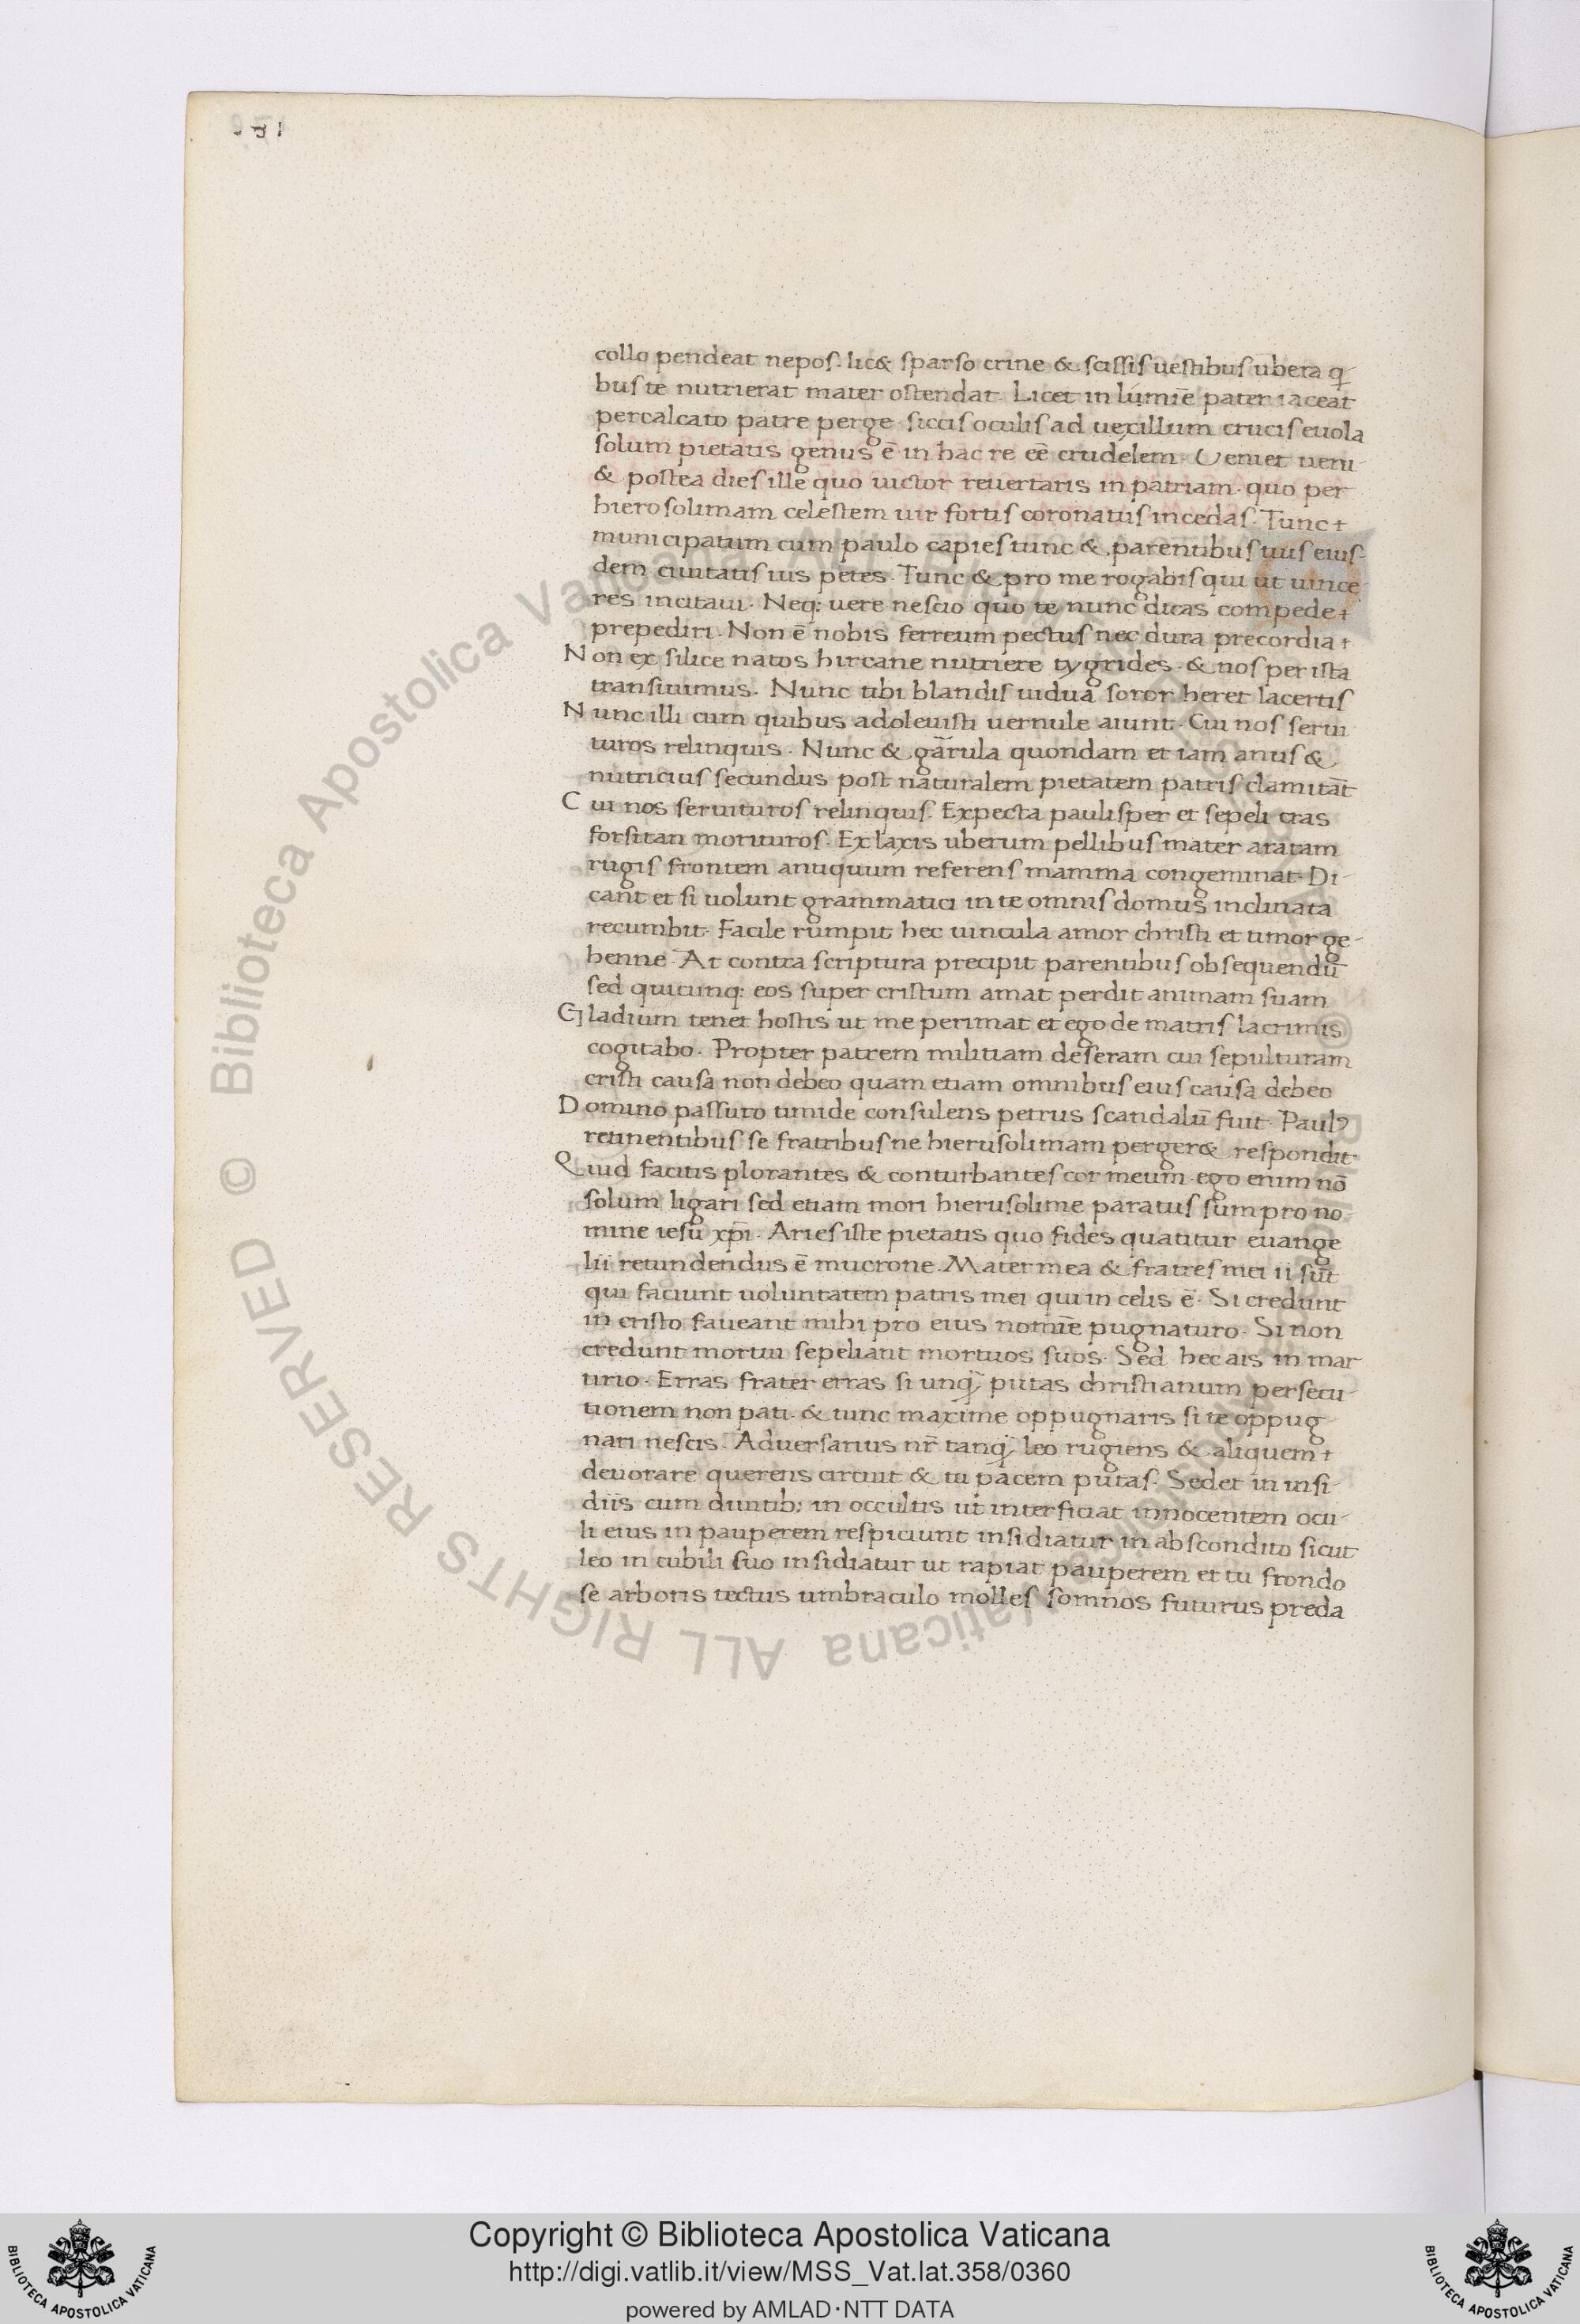 collo pendeat nepos. lic& sparso crine & scissis uestibus ubera q
bus te nutrierat mater ostendat. Licet in lumīe pater iaceat
percalcato patre perge siccis oculis ad uexillum crucis euola
solum pietatis genus ē in hac re eē crudelem. Ueniet ueni-
& postea dies ille quo uictor reuertaris in patriam. quo per
hierosolimam celestem uir fortis coronatus incedas. Tunc
municipatum cum paulo capies tunc & parentibus tuis eius-
dem ciuitatis ius petes. Tunc & pro me rogabis qui ut uince
res incitaui. Neq: uere nescio quo te nunc dicas compede
prepediri. Non ē nobis ferreum pectus nec dura precordia
Non ex silice natos hircane nutriere tygrides. & nos per ista
transiuimus. Nunc tibi blandis uidua soror heret lacertis
Nunc illi cum quibus adoleuisti uernule aiunt. Cui nos serui
turos relinquis. Nunc & garula quondam et iam anus &
nutricius secundus post naturalem pietatem patris clamitāt
Cui nos seruituros relinquis. Expecta paulisper et sepeli cras
forsitan morituros. Ex laxis uberum pellibus mater aratam
rugis frontem antiquum referens mamma congeminat. Di-
cant et si uolunt grammatici in te omnis domus inclinata
recumbit. Facile rumpit hec uincula amor christi et timor ge-
henne. At contra scriptura precipit parentibus obsequendū
sed quicunq: eos super cristum amat perdit animam suam
Gladium tenet hostis ut me perimat et ego de matris lacrimis
cogitabo. Propter patrem militiam deseram cui sepulturam
cristi causa non debeo quam etiam omnibus eius causa debeo
Domino passuro timide consulens petrus scandalū fuit. Paulꝰ
retinentibus se fratribus ne hierusolimam perger& respondit
Quid facitis plorantes & conturbantes cor meum. ego enim nō
solum ligari sed etiam mori hierusolime paratus sum pro no-
mine iesu xp̄i. Aries iste pietatis quo fides quatitur euange
lii retundendus ē mucrone. Mater mea & fratres mei ii sūt
qui faciunt uoluntatem patris mei qui in celis ē. Si credunt
in cristo faueant mihi pro eius nomīe pugnaturo. Si non
credunt mortui sepeliant mortuos suos. Sed hec ais in mar
tirio. Erras frater erras si unq̄ putas christianum persecu-
tionem non pati. & tunc maxime oppugnaris si te oppug
nari nescis. Aduersarius nr̄ tanq̄ leo rugiens & aliquem
deuorare querens circuit & tu pacem putas. Sedet in insi-
diis cum diuitib; in occultis ut interficiat innocentem ocu-
li eius in pauperem respiciunt insidiatur in abscondito sicut
leo in cubili suo insidiatur ut rapiat pauperem et tu frondo
se arboris tectus umbraculo molles somnos futurus preda
© Biblioteca Apostolica Vaticana ALL RIGHTS RESERVED
© Biblioteca Apostolica Vaticana ALL RIGHTS RESERVED
Copyright © Biblioteca Apostolica Vaticana
http://digi.vatlib.it/view/MSS_Vat.lat.358/0360
powered by AMLAD·NTT DATA
BIBLIOTECA APOSTOLICA VATICANA
BIBLIOTECA APOSTOLICA VATICANA